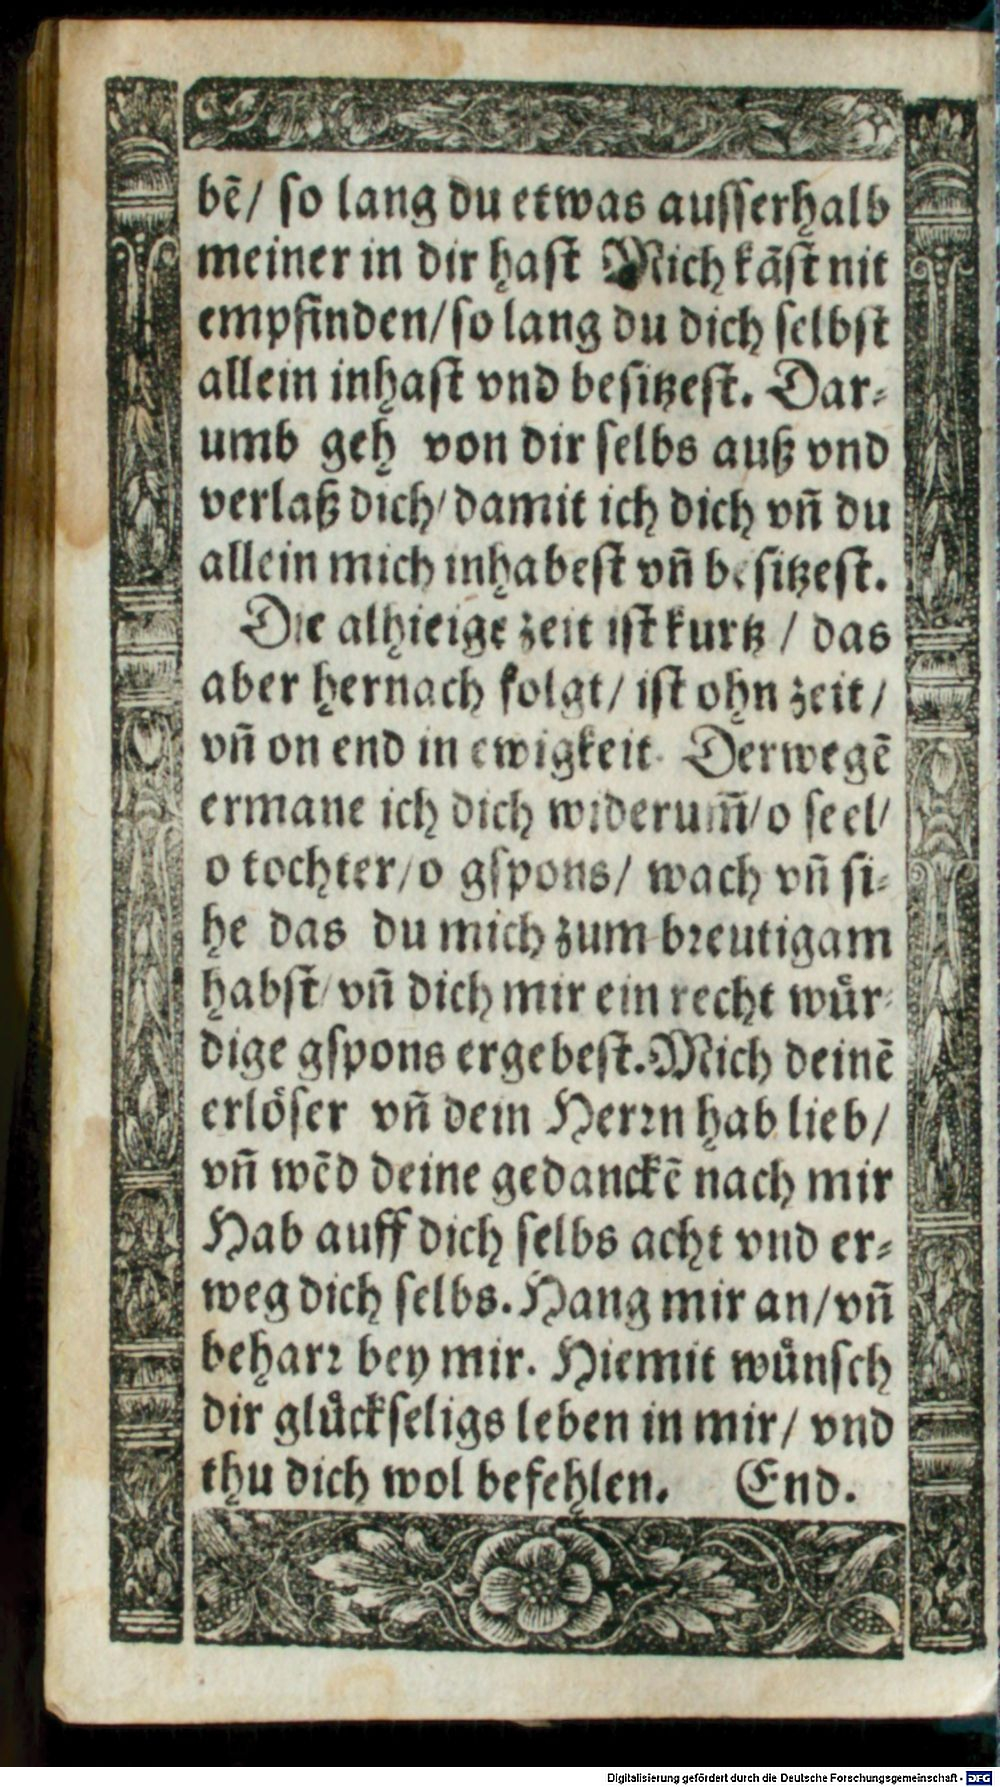 bē/ so lang du etwas ausserhalb
meiner in dir hast Mich kāst nit
empfinden/ so lang du dich selbst
allein inhast vnd besitzest. Dar-
umb geh von dir selbs auß vnd
verlaß dich/ damit ich dich vn̄ du
allein mich inhabest vn̄ besitzest.
Die alhieige zeit ist kurtz / das
aber hernach folgt/ ist ohn zeit/
vn̄ on end in ewigkeit. Derwegē
ermane ich dich widerum̄/ o seel/
o tochter/ o gspons/ wach vn̄ si-
he das du mich zum breutigam
habst/ vn̄ dich mir ein recht wuͤr-
dige gspons ergebest. Mich deinē
erlöser vn̄ dein Herrn hab lieb/
vn̄ wēd deine gedanckē nach mir
Hab auff dich selbs acht vnd er-
weg dich selbs. Hang mir an/ vn̄
beharr bey mir. Hiemit wuͤnsch
dir gluͤckseligs leben in mir/ vnd
thu dich wol befehlen. End.
Digitalisierung gefördert durch die Deutsche Forschungsgemeinschaft - DFG